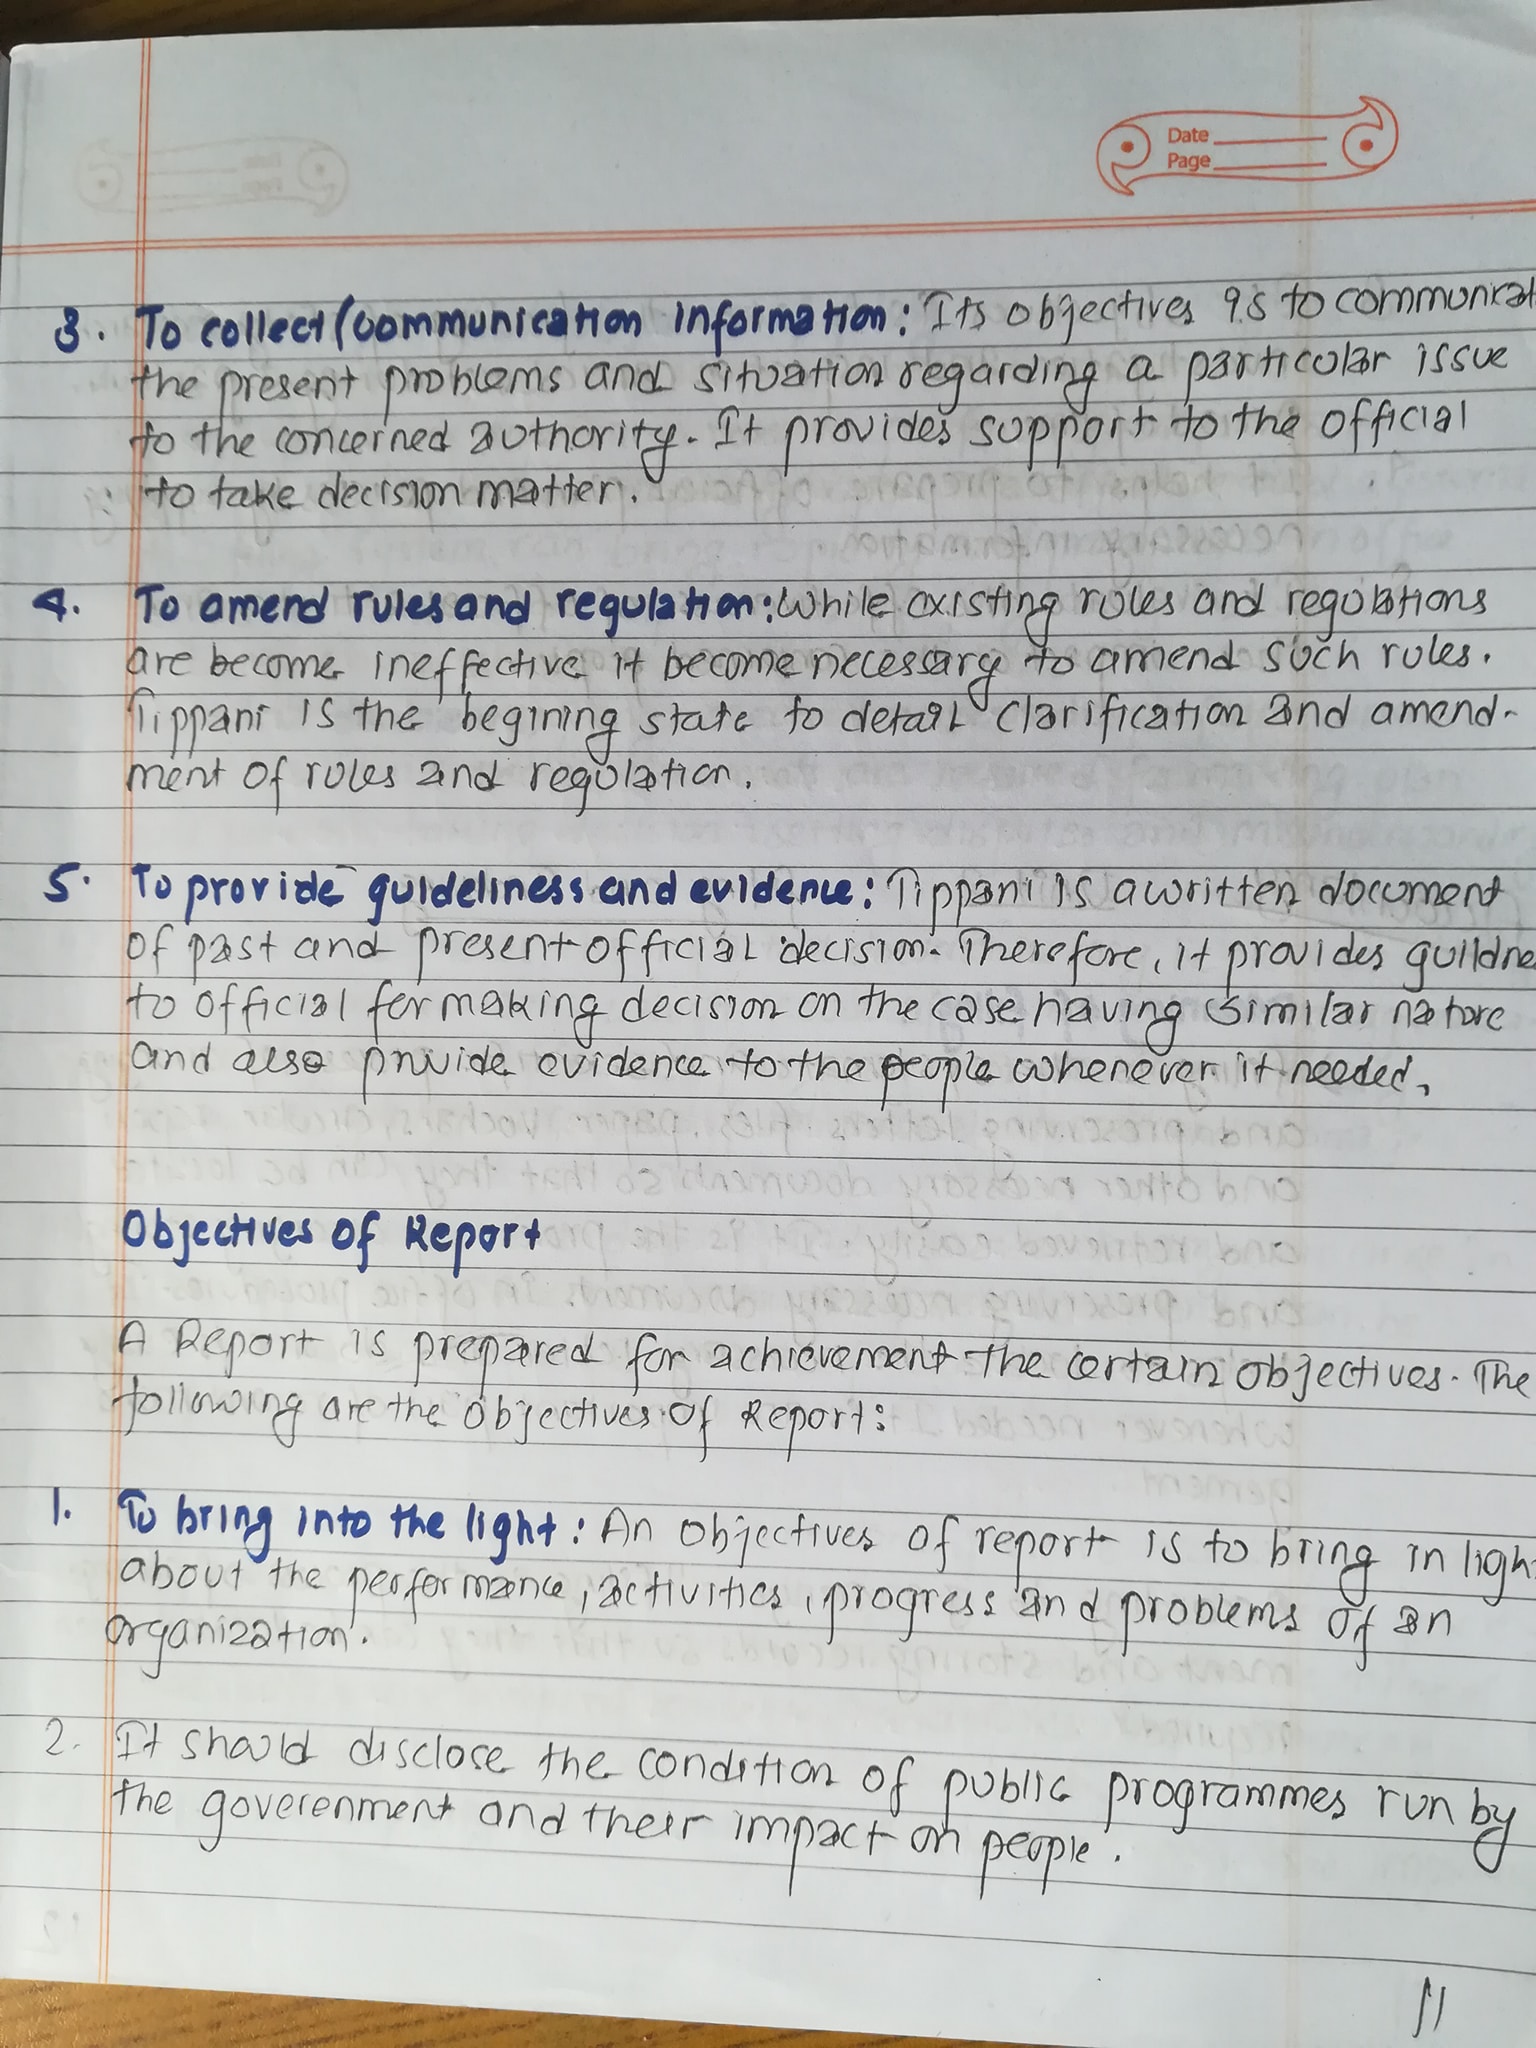 Date
Page
3. To collect/communication information: Its objectives is to communicat
the present problems and situation regarding a particular issue
to the concerned authority. It provides support to the official
to take decision matter.
4. To amend rules and regulation: While existing rules and regulations
are become ineffective it become necessary to amend such rules.
Tippani is the begining state to detail clarification and amend-
ment of rules and regulation.
5. To provide guideliness and evidence: Tippani is a written document
of past and present official decision. Therefore, it provides guildne
to official for making decision on the case having similar nature
and also provide evidence to the people whenever it needed.
Objectives of Report
A Report is prepared for achievement the certain objectives. The
following are the objectives of Report:
1. To bring into the light: An objectives of report is to bring in ligh
about the performance, activities, progress and problems of an
organization.
2. It should disclose the condition of public programmes run by
the goverenment and their impact on people.
11